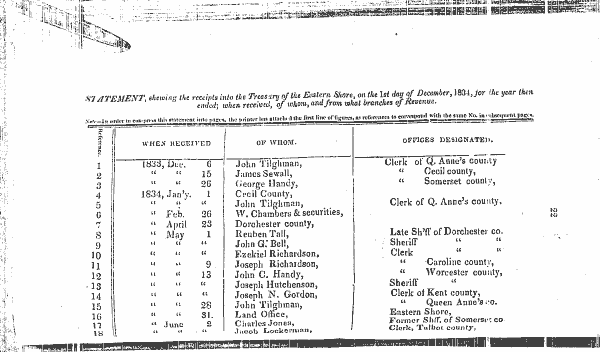 STATEMENT, shewing the receipts into the Treasury of the Eastern Shore, on the 1st day of December, 1834, for the year then
ended; when received, of whom, and from what branches of Revenue.
Note—In order to compress this statement into pages, the printer has attached the first line of figures, as references to correspond with the same No. in subsequent pages.
Reference. WHEN RECEIVED OF WHOM. OFFICES DESIGNATED.
1 1833, Dec. 6 John Tilghman, Clerk of Q. Anne's county
2 " " 15 James Sewall, " Cecil county,
3 " " 26 George Handy, " Somerset county,
4 1834, Jan'y. 1 Cecil County,
5 " " " John Tilghman, Clerk of Q. Anne's county.
6 " Feb. 26 W. Chambers & securities,
7 " April 23 Dorchester county,
8 " May 1 Reuben Tall, Late Sh'ff of Dorchester co.
9 " " " John G. Bell, Sheriff " "
10 " " " Ezekiel Richardson, Clerk " "
11 " " 9 Joseph Richardson, " Caroline county,
12 " " 13 John C. Handy, " Worcester county,
13 " " " Joseph Hutchenson, Sheriff "
14 " " " Joseph N. Gordon, Clerk of Kent county,
15 " " 28 John Tilghman, " Queen Anne's co.
16 " " 31. Land Office, Eastern Shore,
17 " June 2 Charles Jones, Former Shff. of Somerset co
18 " " " Jacob Lockerman, Clerk, Talbot county,
22